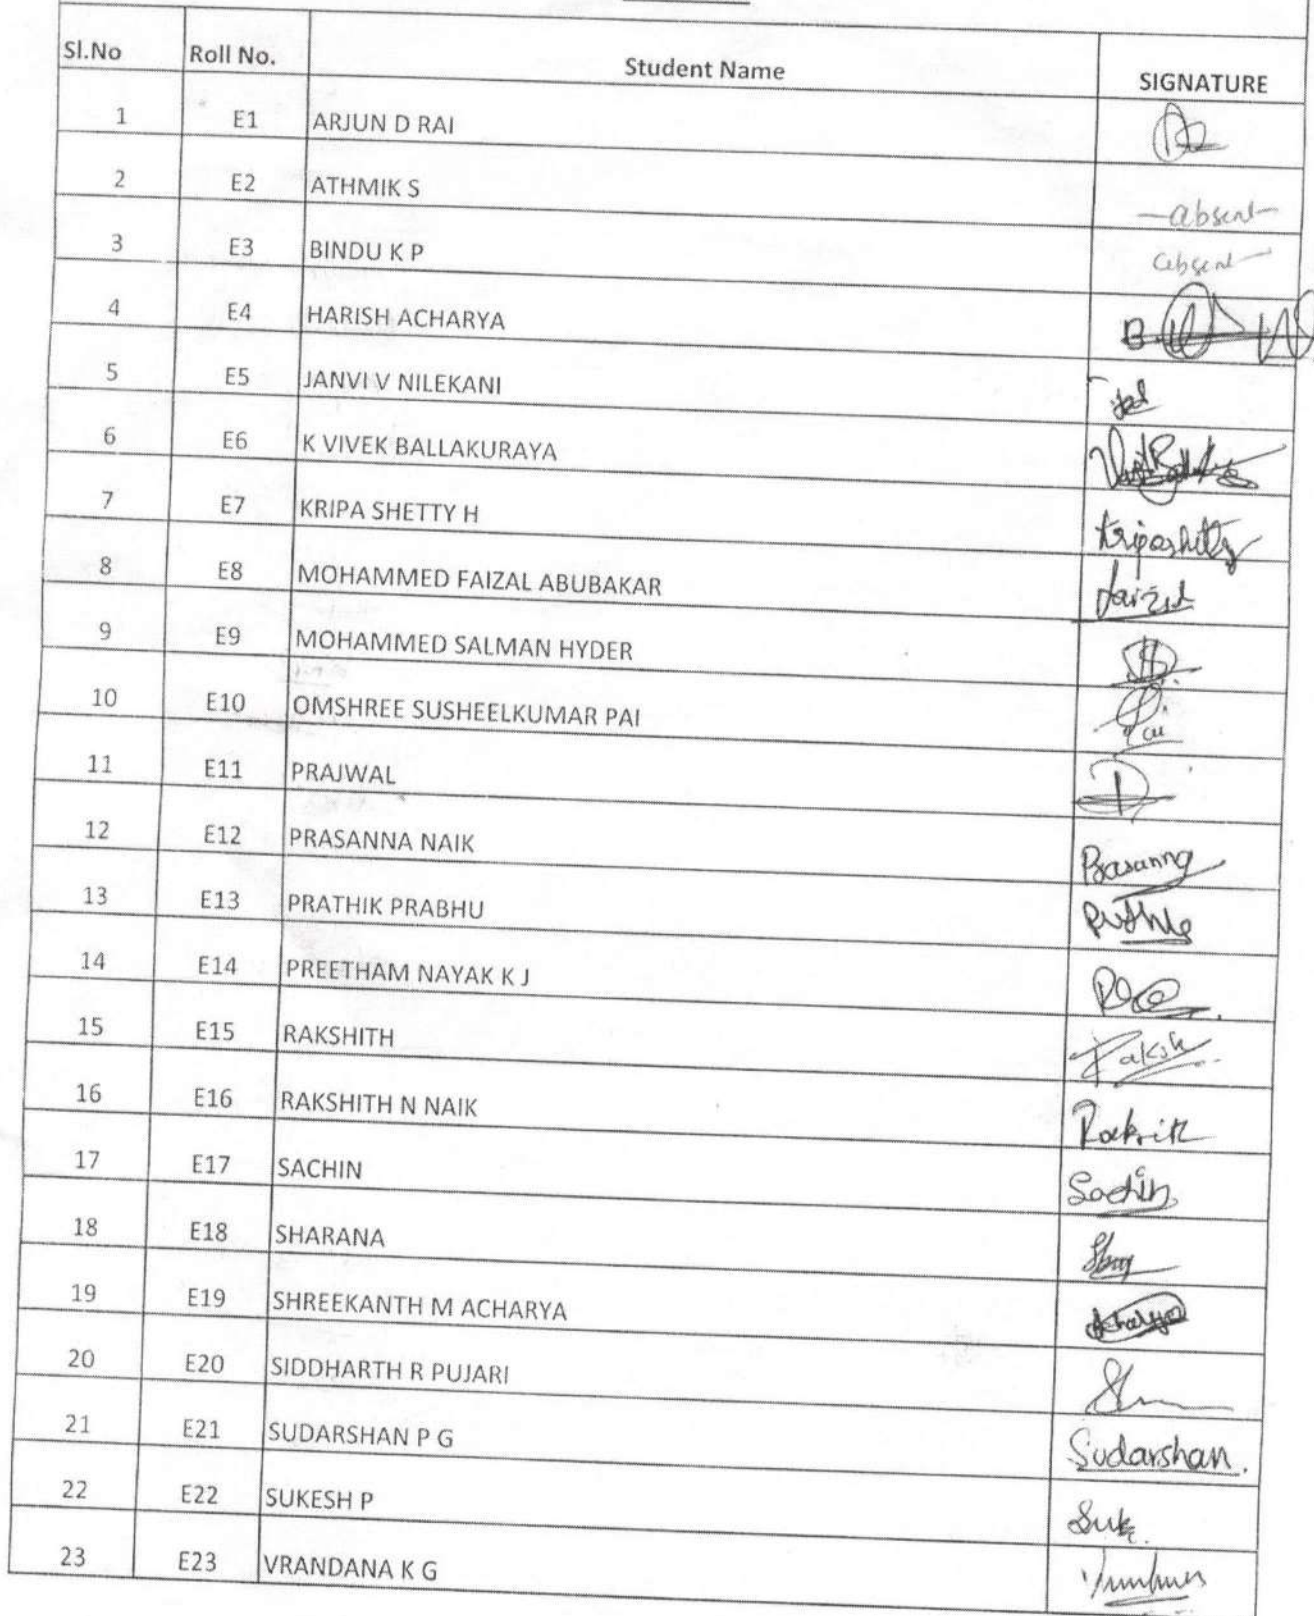 Sl.No Roll No. Student Name SIGNATURE
1 E1 ARJUN D RAI
2 E2 ATHMIK S -absent-
3 E3 BINDU K P absent
4 E4 HARISH ACHARYA
5 E5 JANVI V NILEKANI
6 E6 K VIVEK BALLAKURAYA
7 E7 KRIPA SHETTY H Kripashetty
8 E8 MOHAMMED FAIZAL ABUBAKAR Faizal
9 E9 MOHAMMED SALMAN HYDER
10 E10 OMSHREE SUSHEELKUMAR PAI Pai
11 E11 PRAJWAL
12 E12 PRASANNA NAIK Prasanna
13 E13 PRATHIK PRABHU
14 E14 PREETHAM NAYAK K J
15 E15 RAKSHITH Raksh
16 E16 RAKSHITH N NAIK
17 E17 SACHIN Sachin
18 E18 SHARANA
19 E19 SHREEKANTH M ACHARYA Acharya
20 E20 SIDDHARTH R PUJARI
21 E21 SUDARSHAN P G Sudarshan.
22 E22 SUKESH P Suk.
23 E23 VRANDANA K G